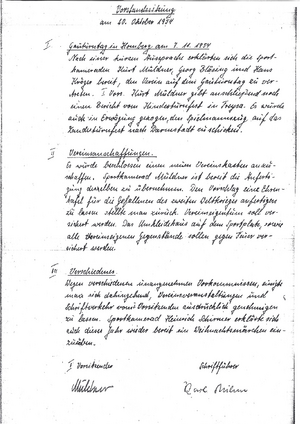 Vorstandssitzung
am 20. Oktober 1954
I Gauturntag in Homberg am 7. 11. 1954
Nach einer kurzen Aussprache erklärten sich die Sport-
kameraden Kurt Müldner, Georg Bläsing und Hans
Krüger bereit, den Verein auf dem Gauturntag zu ver-
treten. I Vors. Kurt Müldner gibt anschließend noch
einen Bericht vom Kinderturnfest in Treysa. Es wurde
auch in Erwägung gezogen, den Spielmannszug auf das
Landesturnfest nach Darmstadt zu schicken.
II Vereinsanschaffungen.
Es wurde beschlossen einen neuen Vereinskasten anzu-
schaffen. Sportkamerad Müldner ist bereit die Anferti-
gung desselben zu übernehmen. Den Vorschlag eine Ehren-
tafel für die Gefallenen des zweiten Weltkrieges anfertigen
zu lassen stellte man zurück. Vereinseigentum soll ver-
sichert werden. Das Umkleidehaus auf dem Sportplatz, sowie
alle vereinseigenen Gegenstände sollen gegen Feuer ver-
sichert werden.
III Verschiedenes
Wegen verschiedenen unangenehmen Vorkommnissen, einigte
man sich dahingehend, Vereinsveranstaltungen und
Schriftverkehr vom I Vorsitzenden ausdrücklich genehmigen
zu lassen. Sportkamerad Heinrich Schirmer erklärte sich
auch dieses Jahr wieder bereit ein Weihnachtsmärchen ein-
zuüben.
I Vorsitzender Schriftführer
Müldner Karl